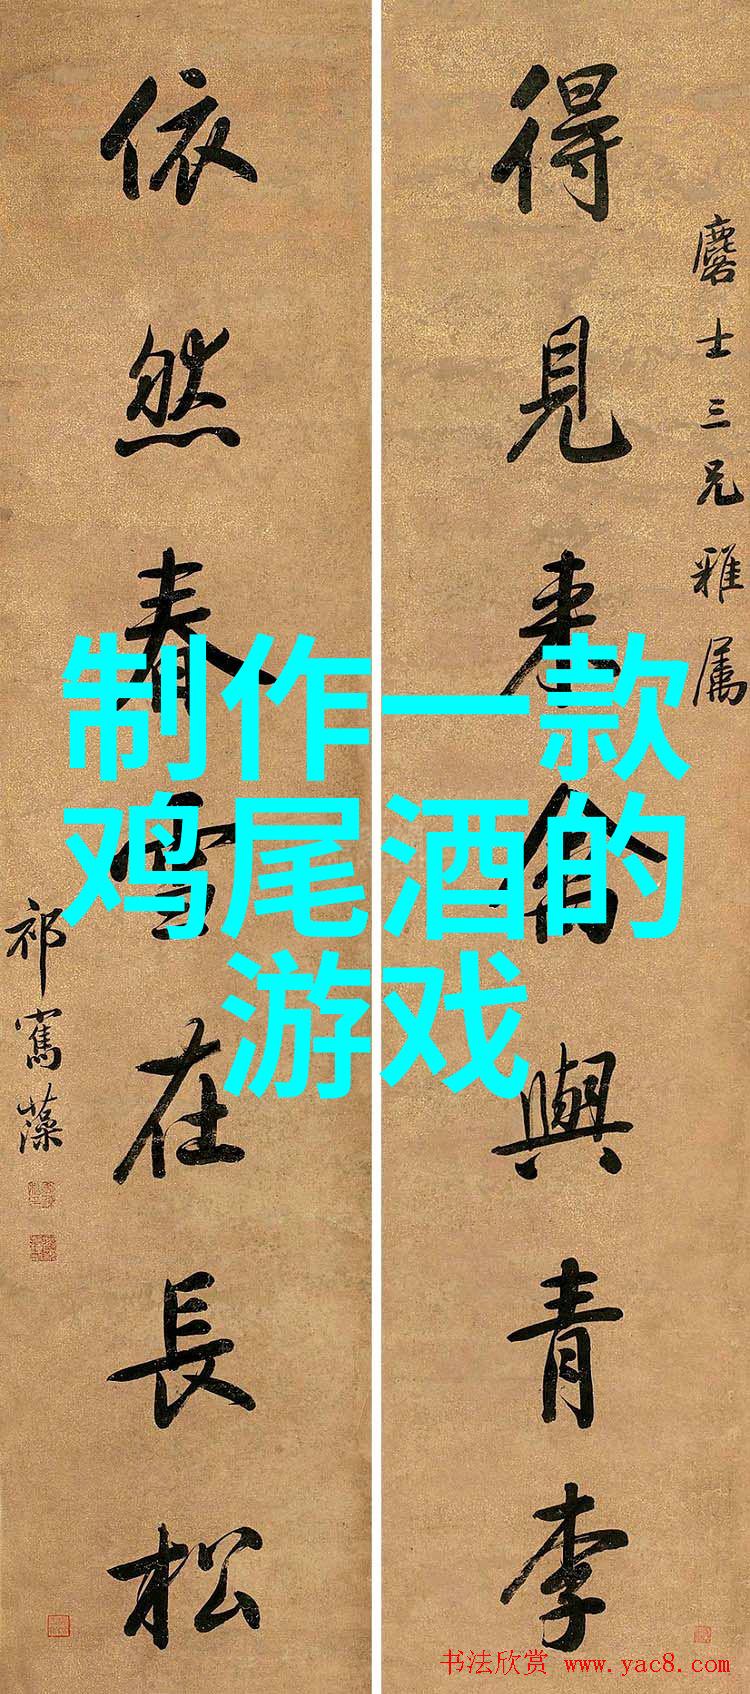 麐士三兄雅属
得見来禽與青李
依然春雪在長松
祁寯藻
制作一款
鸡尾酒的
游戏
书法欣赏 www.yac8.com